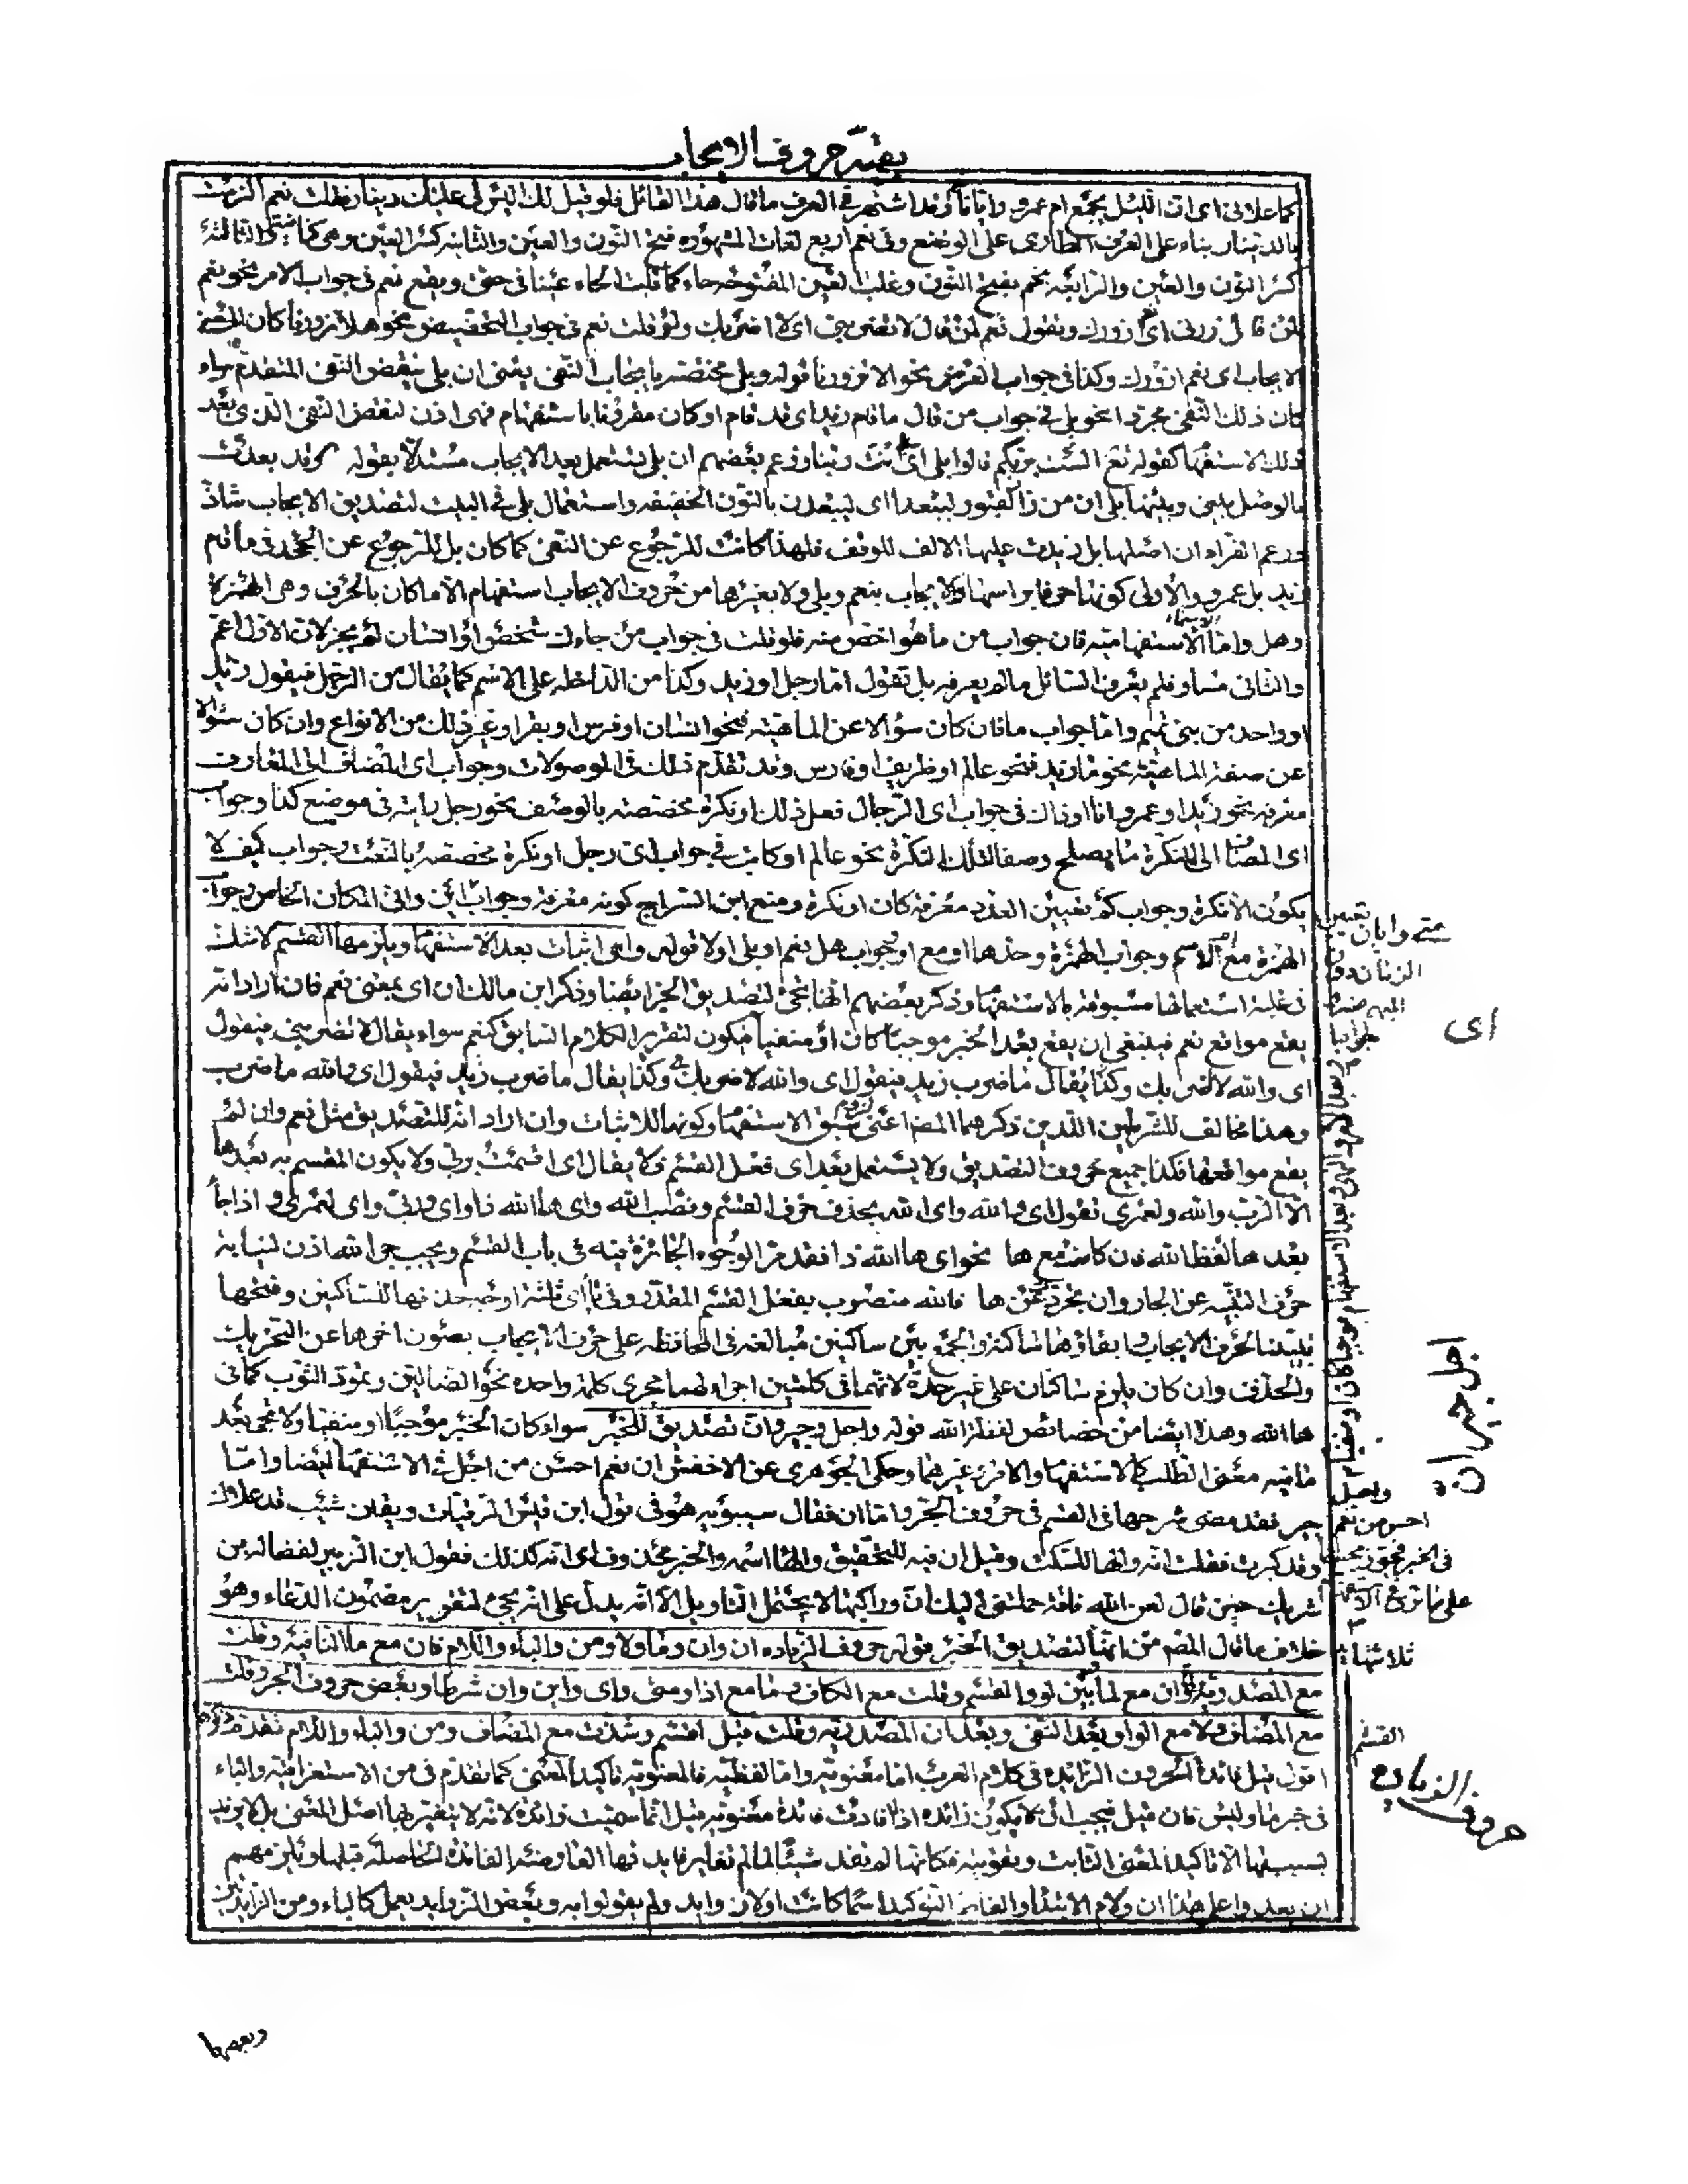 بقيّة حروف الايجاب
كما علانى اى ان الليل يجمع ام عمرو وايانا وقد اشتهر فى العرف ما قال هذا القائل فلو قيل لك اليس لى عليك دينار فقلت نعم الزمت
بالدينار بناء على العرف الطارى على الوضع وفى نعم اربع لغات المشهورة فتح النون والعين والثانية كسر العين وهى كنانية والثالثة
كسر النون والعين والرابعة نحم بفتح النون وقلب العين المفتوحة حاء كما قلبت الحاء عينا فى حتى ويقع نعم فى جواب الامر نحو نعم
لمن قال زرنى اى ازورك وتقول نعم لمن قال لا تضربنى اى لا اضربك ولو قلت نعم فى جواب التحضيض نحو هلا تزورنا كان المعنى
الايجاب اى نعم ازورك وكذا فى جواب العرض نحو الا تزورنا قوله وبلى مختصة بايجاب النفى يعنى ان بلى ينقض النفى المتقدم سواء
كان ذلك النفى مجردا نحو بلى فى جواب من قال ما قام زيد اى قد قام او كان مقرونا باستفهام فهى اذن لنقض النفى الذى بعد
ذلك الاستفهام كقوله تع الست بربكم قالوا بلى اى انت ربنا وزعم بعضهم ان بلى يستعمل بعد الايجاب مستدلا بقوله وقد بعدت
بالوصل بينى وبينها بلى ان من زار القبور ليبعدا اى ليبعدن بالنون الخفيفة واستعمال بلى فى البيت لتصديق الايجاب شاذ
وزعم الفراء ان اصلها بل زيدت عليها الالف للوقف فلهذا كانت للرجوع عن النفى كما كان بل للرجوع عن الجحد فى ما قام
زيد بل عمرو والاولى كونها حرفا براسها ولا يجاب بنعم وبلى ولا بغيرها من حروف الايجاب استفهام الا ما كان بالحرف وهى الهمزة
وهل واما الاسماء الاستفهامية فان جواب من ما هو اخص منه فلو قلت فى جواب من جاءك شخص او انسان لم يجز لان الاول اعم
والثانى مساو فلم يعرف السائل ما لم يعرفه بل تقول اما رجل او زيد وكذا من الداخلة على الاسم كما يقال من الرجل فيقول زيد
او واحد من بنى تميم واما جواب ما فان كان سؤالا عن الماهية فنحو انسان او فرس او بقر او غير ذلك من الانواع وان كان سؤالا
عن صفة الماهية نحو ما زيد فنحو عالم او ظريف او فارس وقد تقدم ذلك فى الموصولات وجواب اى المضاف الى المعارف
معرفة نحو زيد او عمرو او انا او ذاك فى جواب اى الرجال فعل ذلك او نكرة مختصة بالوصف نحو رجل رايته فى موضع كذا وجواب
اى المضاف الى النكرة ما يصلح وصفا لتلك النكرة نحو عالم او كاتب فى جواب اى رجل او نكرة مخصصة بالنعت وجواب كيف لا
يكون الا نكرة وجواب كم تعيين العدد معرفة كان او نكرة ومنع ابن السراج كونه معرفة وجواب اين وانى المكان الخاص وجواب
الهمزة مع ام الاسم وجواب الهمزة وحدها او مع او وجواب هل نعم او بلى او لا قوله واى اثبات بعد الاستفهام ويلزمها القسم لا شك
فى غلبة استعمالها مسبوقة بالاستفهام وذكر بعضهم انها تجئ لتصديق الخبر ايضا وذكر ابن مالك ان اى بمعنى نعم فان اراد انه
يقع مواقع نعم فينبغى ان يقع بعد الخبر موجبا كان او منفيا فيكون لتقرير الكلام السابق كنعم سواء يقال لا تضربنى فيقول
اى والله لا اضربك وكذا يقال ما ضرب زيد فيقول اى والله ما ضرب
وهذا مخالف للشرطين اللذين ذكرهما المص اعنى لزوم سبق الاستفهام وكونها للاثبات وان اراد انه للتصديق مثل نعم وان لم
يقع مواقعها فكذا جميع حروف التصديق ولا يستعمل بعد اى فعل القسم فلا يقال اى اقسمت بربى ولا يكون المقسم به بعدها
الا الرب والله ولعمرى تقول اى والله واى الله بحذف حرف القسم ونصب الله واى ها الله ذا واى وربى واى لعمرى واذا جاء
بعدها لفظ الله فان كانت مع ها نحو اى ها الله ذا فقد مر الوجوه الجائزة فيه فى باب القسم ويجب جر الله اذن لنيابة
حرف التنبيه عن الجار وان تجرد عن ها فالله منصوب بفعل القسم المقدر وفى ياء اى ثلثة اوجه حذفها للساكنين وفتحها
تبيينا لحرف الايجاب وابقاؤها ساكنة والجمع بين ساكنين مبالغة فى المحافظة على حرف الايجاب بصون اخرها عن التحريك
والحذف وان كان يلزم ساكنان على غير حده لانهما فى كلمتين اجراء لهما مجرى كلمة واحدة نحو الضالين وتمود الثوب كما فى
ها الله وهذا ايضا من خصائص لفظة الله قوله واجل وجير وان تصديق للخبر سواء كان الخبر موجبا او منفيا ولا تجئ بعد
ما فيه معنى الطلب كالاستفهام والامر وغيرهما وحكى الجوهرى عن الاخفش ان نعم احسن من اجل فى الاستفهام ايضا واما
جير فقد مضى شرحها فى القسم فى حروف الجر واما ان فقال سيبويه هو فى قول ابن قيس الرقيات ويقلن شيب قد علاك
وقد كبرت فقلت انه والهاء للسكت وقيل ان فيه للتحقيق والهاء اسمه والخبر محذوف اى انه كذلك فقول ابن الزبير لفضالة بن
شريك حين قال لعن الله ناقة حملتنى اليك ان وراكبها لا يحتمل التاويل الا انه يدل على انه يجئ لتقرير مضمون الدعاء وهو
خلاف ما قال المص من انها لتصديق الخبر قوله حروف الزيادة ان وان وما ولا ومن والباء واللام فان مع ما النافية وقلت
مع المصدرية ولما وان مع لما وبين لو والقسم وقلت مع الكاف وما مع اذا ومتى واى واين وان شرطا وبعض حروف الجر وقلت
مع المضاف ولا مع الواو بعد النفى وبعد ان المصدرية وقلت قبل اقسم وشذت مع المضاف ومن والباء واللام تقدم ذكرها
اقول قيل فائدة الحروف الزائدة فى كلام العرب اما معنوية واما لفظية فالمعنوية تاكيد المعنى كما تقدم فى من الاستغراقية والباء
فى خبر ما وليس فان قيل فيجب ان لا يكون زائدة اذا افادت فائدة معنوية قيل انما سميت زائدة لانه لا يتغير بها اصل المعنى بل لا يزيد
بسببها الا تاكيد المعنى الثابت وتقويته فكانها لم تفد شيئا لما لم تغاير فايدتها العارضة الفائدة الحاصلة قبلها ويلزمهم
ان يعدوا على هذا ان ولام الابتداء والفاظ التاكيد اسما كانت اولا زوايد ولم يقولوا به وبعض الزوايد يعمل كالباء ومن الزائدتين
متى وايان تعيين
الزمان دون
اى
احسن من نعم
فى الخبر
ثلاثتها
القسم
حروف الزيادة
وبعضها